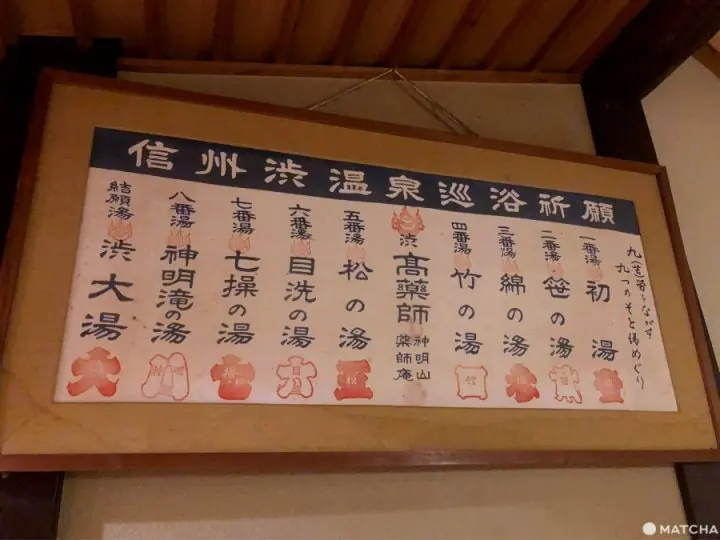 信州渋温泉巡浴祈願
九(苦)労をながす
九つのそと湯めぐり
一番湯 初湯
二番湯 笹の湯
三番湯 綿の湯
四番湯 竹の湯
渋高薬師
神明山
薬師庵
五番湯 松の湯
六番湯 目洗の湯
七番湯 七操の湯
八番湯 神明滝の湯
結願湯 渋大湯
MATCHA